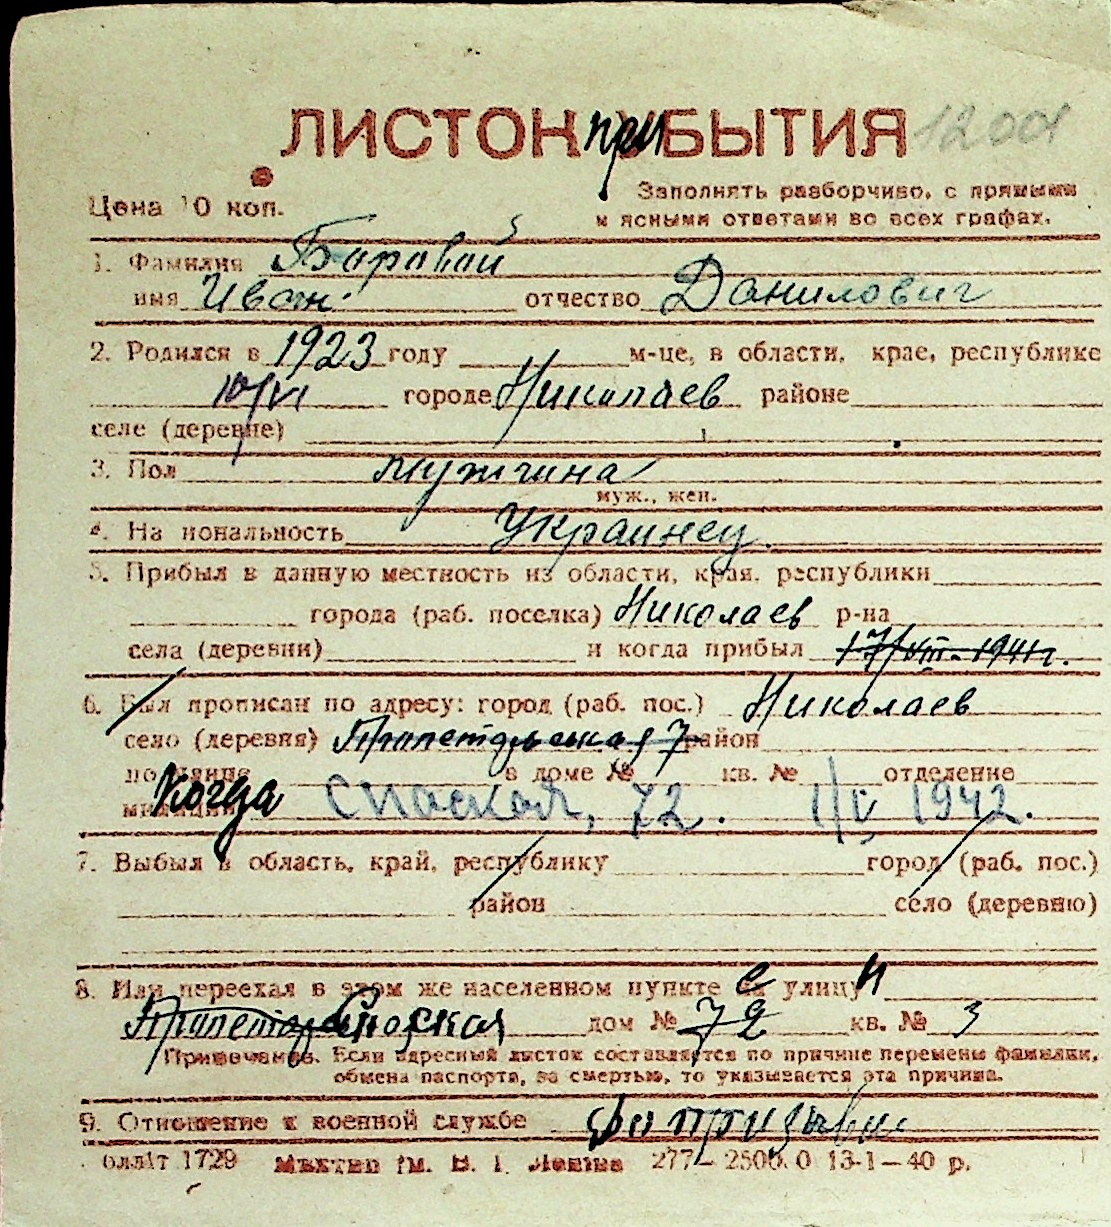 ЛИСТОК при БЫТИЯ 12001
Цена 10 коп. Заполнять разборчиво, с прямыми
и ясными ответами во всех графах.
1. Фамилия Боровой
имя Иван. отчество Данилович
2. Родился в 1923 году м-це, в области, крае, республике
10/VI городе Николаев районе
селе (деревне)
3. Пол мужчина
муж., жен.
4. На иональность Украинец.
5. Прибыл в данную местность из области, края, республики
города (раб. поселка) Николаев р-на
села (деревни) и когда прибыл 17/VIII-1941г.
6. Был прописан по адресу: город (раб. пос.) Николаев
село (деревня) Пролетарская 7 район
по улице в доме № кв. № отделение
милиции Когда Спаская, 72. 1/V 1942.
7. Выбыл в область, край, республику город (раб. пос.)
район село (деревню)
8. Или переехал в этом же населенном пункте с улицы
Пролетарская Спаская дом № 72 кв. № 3
Примечание. Если адресный листок составляется по причине перемены фамилии,
обмена паспорта, за смертью, то указывается эта причина.
9. Отношение к военной службе
1729 им. В. И. Ленина 277—2500.0 13-1—40 р.